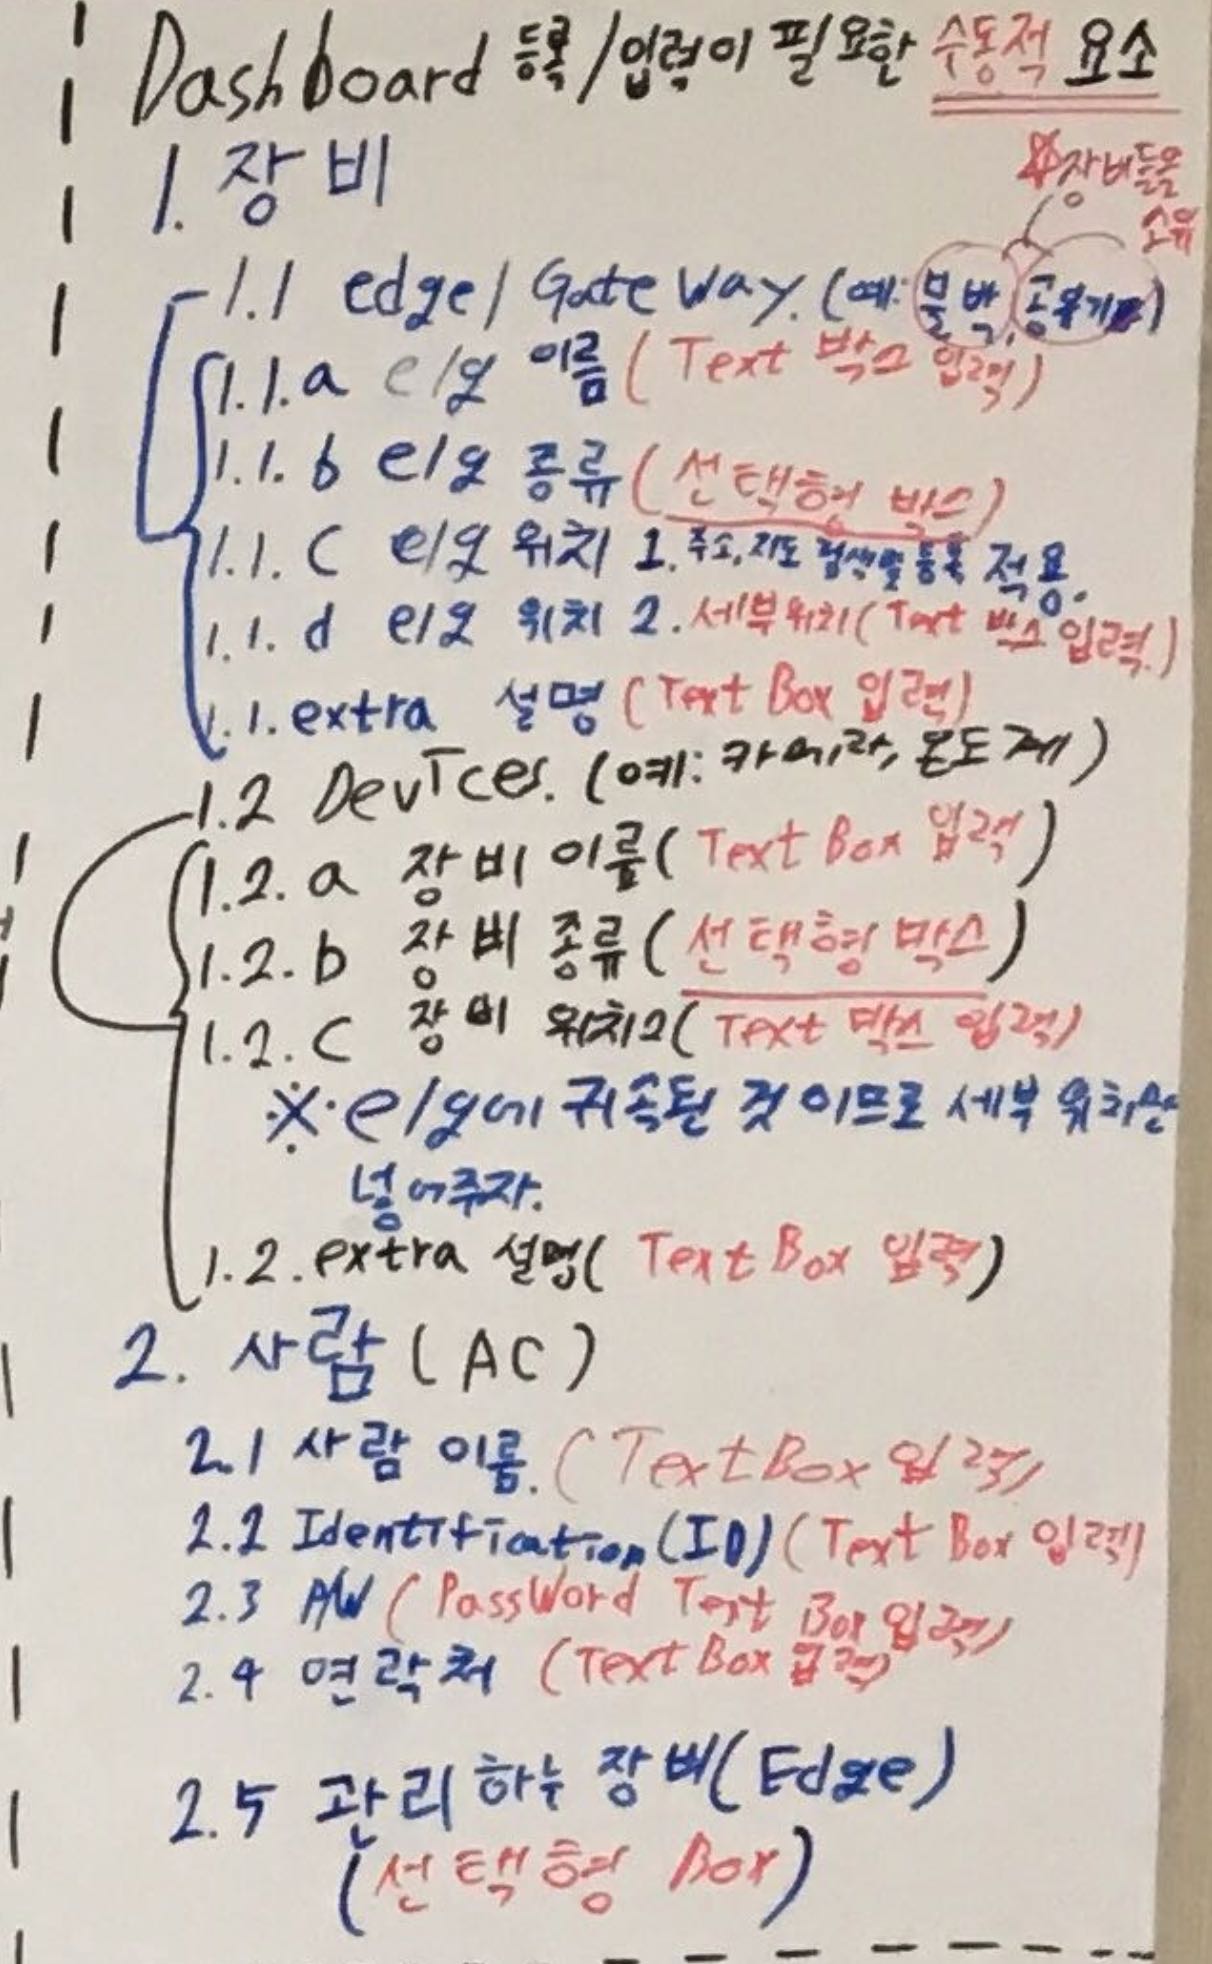 Dashboard 등록/입력이 필요한 수동적 요소
1. 장비
☆장비들을
소유
1.1 edge/GateWay. (예: 물박, 공유기)
1.1.a e/g 이름 (Text 박스 입력)
1.1.b e/g 종류 (선택형 박스)
1.1.c e/g 위치 1. 주소, 지도 검색 및 등록 적용.
1.1.d e/g 위치 2. 세부위치 (Text 박스 입력.)
1.1.extra 설명 (Text Box 입력)
1.2 Devices. (예: 카메라, 온도계)
1.2.a 장비 이름 (Text Box 입력)
1.2.b 장비 종류 (선택형 박스)
1.2.c 장비 위치2 (Text 박스 입력)
※.e/g에 귀속된 것이므로 세부 위치만
넣어주자.
1.2.extra 설명 (Text Box 입력)
2. 사람 (AC)
2.1 사람 이름. (Text Box 입력)
2.2 Identification (ID) (Text Box 입력)
2.3 PW (PassWord Text Box 입력)
2.4 연락처 (Text Box 입력)
2.5 관리하는 장비 (Edge)
(선택형 Box)